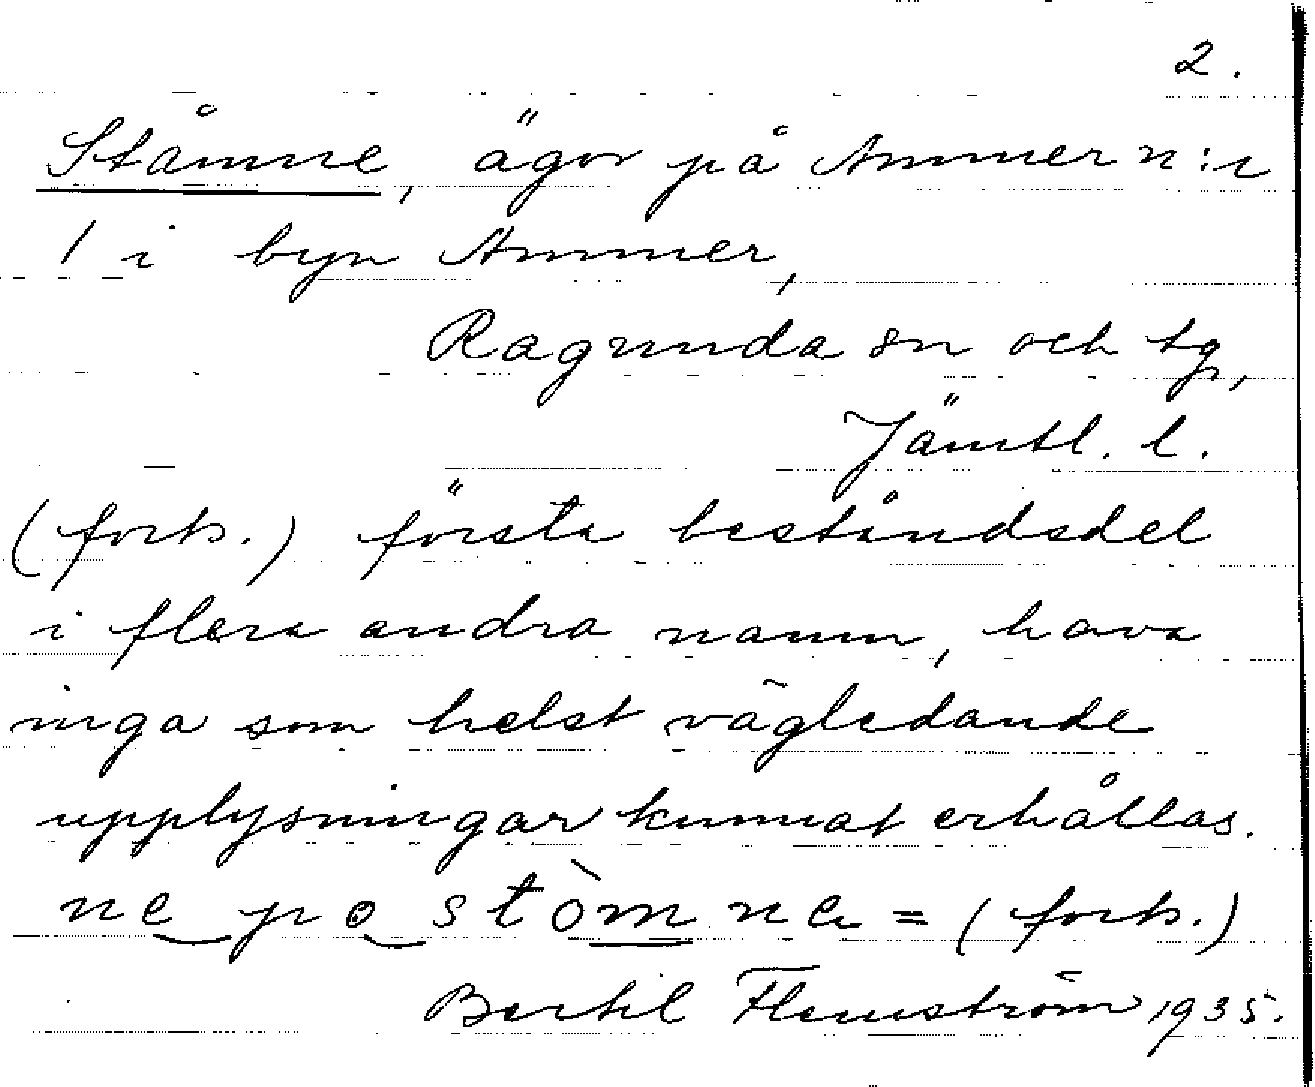 2.
Ståmne, ägor på Ammer n:r
1 i byn Ammer,
Ragunda sn och tg,
Jämtl. l.
(forts.) första beståndsdel
i flera andra namn, hava
inga som helst vägledande
upplysningar kunnat erhållas.
ne po stòmna = (forts.)
Bertil Flemström 1935.